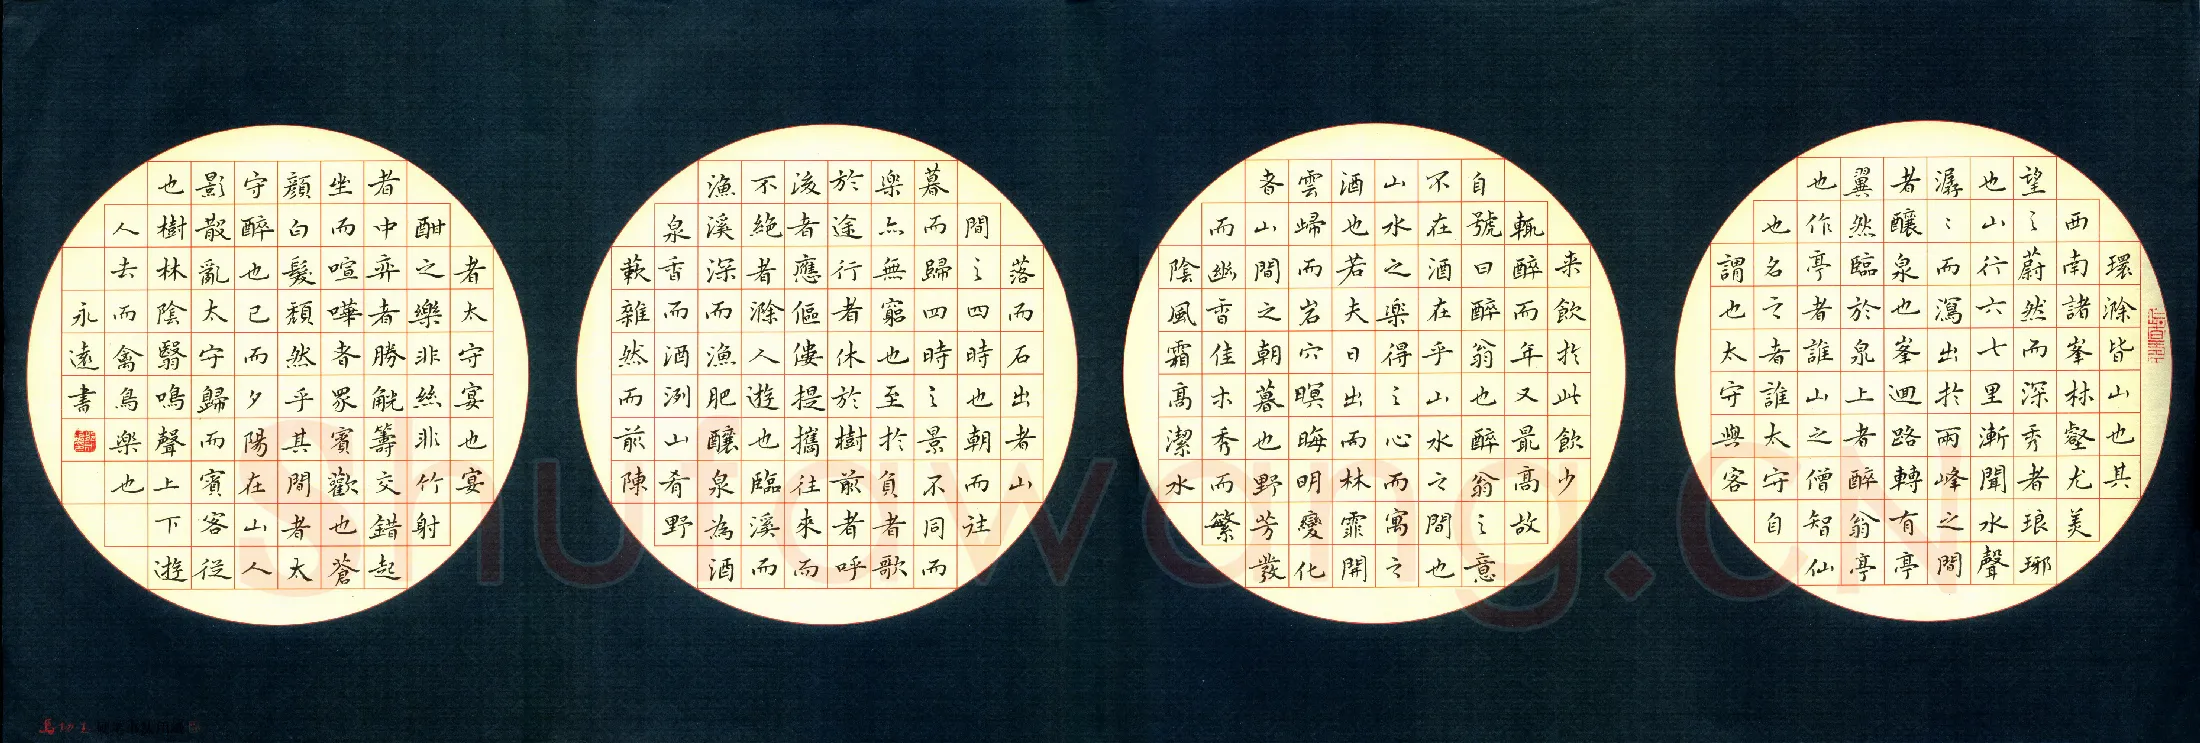 環滁皆山也其
西南諸峯林壑尤美
望〻蔚然而深秀者琅琊
也山行六七里漸聞水聲
潺〻而瀉出於兩峰之間
者釀泉也峯迴路轉有亭
翼然臨於泉上者醉翁亭
也作亭者誰山之僧智仙
也名之者誰太守自
謂也太守與客
来飲於此飲少
輒醉而年又最高故
自號曰醉翁也醉翁〻意
不在酒在乎山水之間也
山水之樂得〻心而寓之
酒也若夫日出而林霏開
雲歸而岩穴暝晦明變化
者山間之朝暮也野芳發
而幽香佳木秀而繁
陰風霜高潔水
落而石出者山
間〻四時也朝而往
暮而歸四時〻景不同而
樂亦無窮也至於負者歌
於途行者休於樹前者呼
後者應傴僂提攜往來而
不絕者滁人遊也臨溪而
漁溪深而漁肥釀泉為酒
泉香而酒洌山肴野
蔌雜然而前陳
者太守宴也宴
酣之樂非絲非竹射
者中弈者勝觥籌交錯起
坐而喧嘩者眾賓歡也蒼
顏白髮頹然乎其間者太
守醉也已而夕陽在山人
影散亂太守歸而賓客從
也樹林陰翳鳴聲上下遊
人去而禽鳥樂也
永遠書
Shufawang.CN